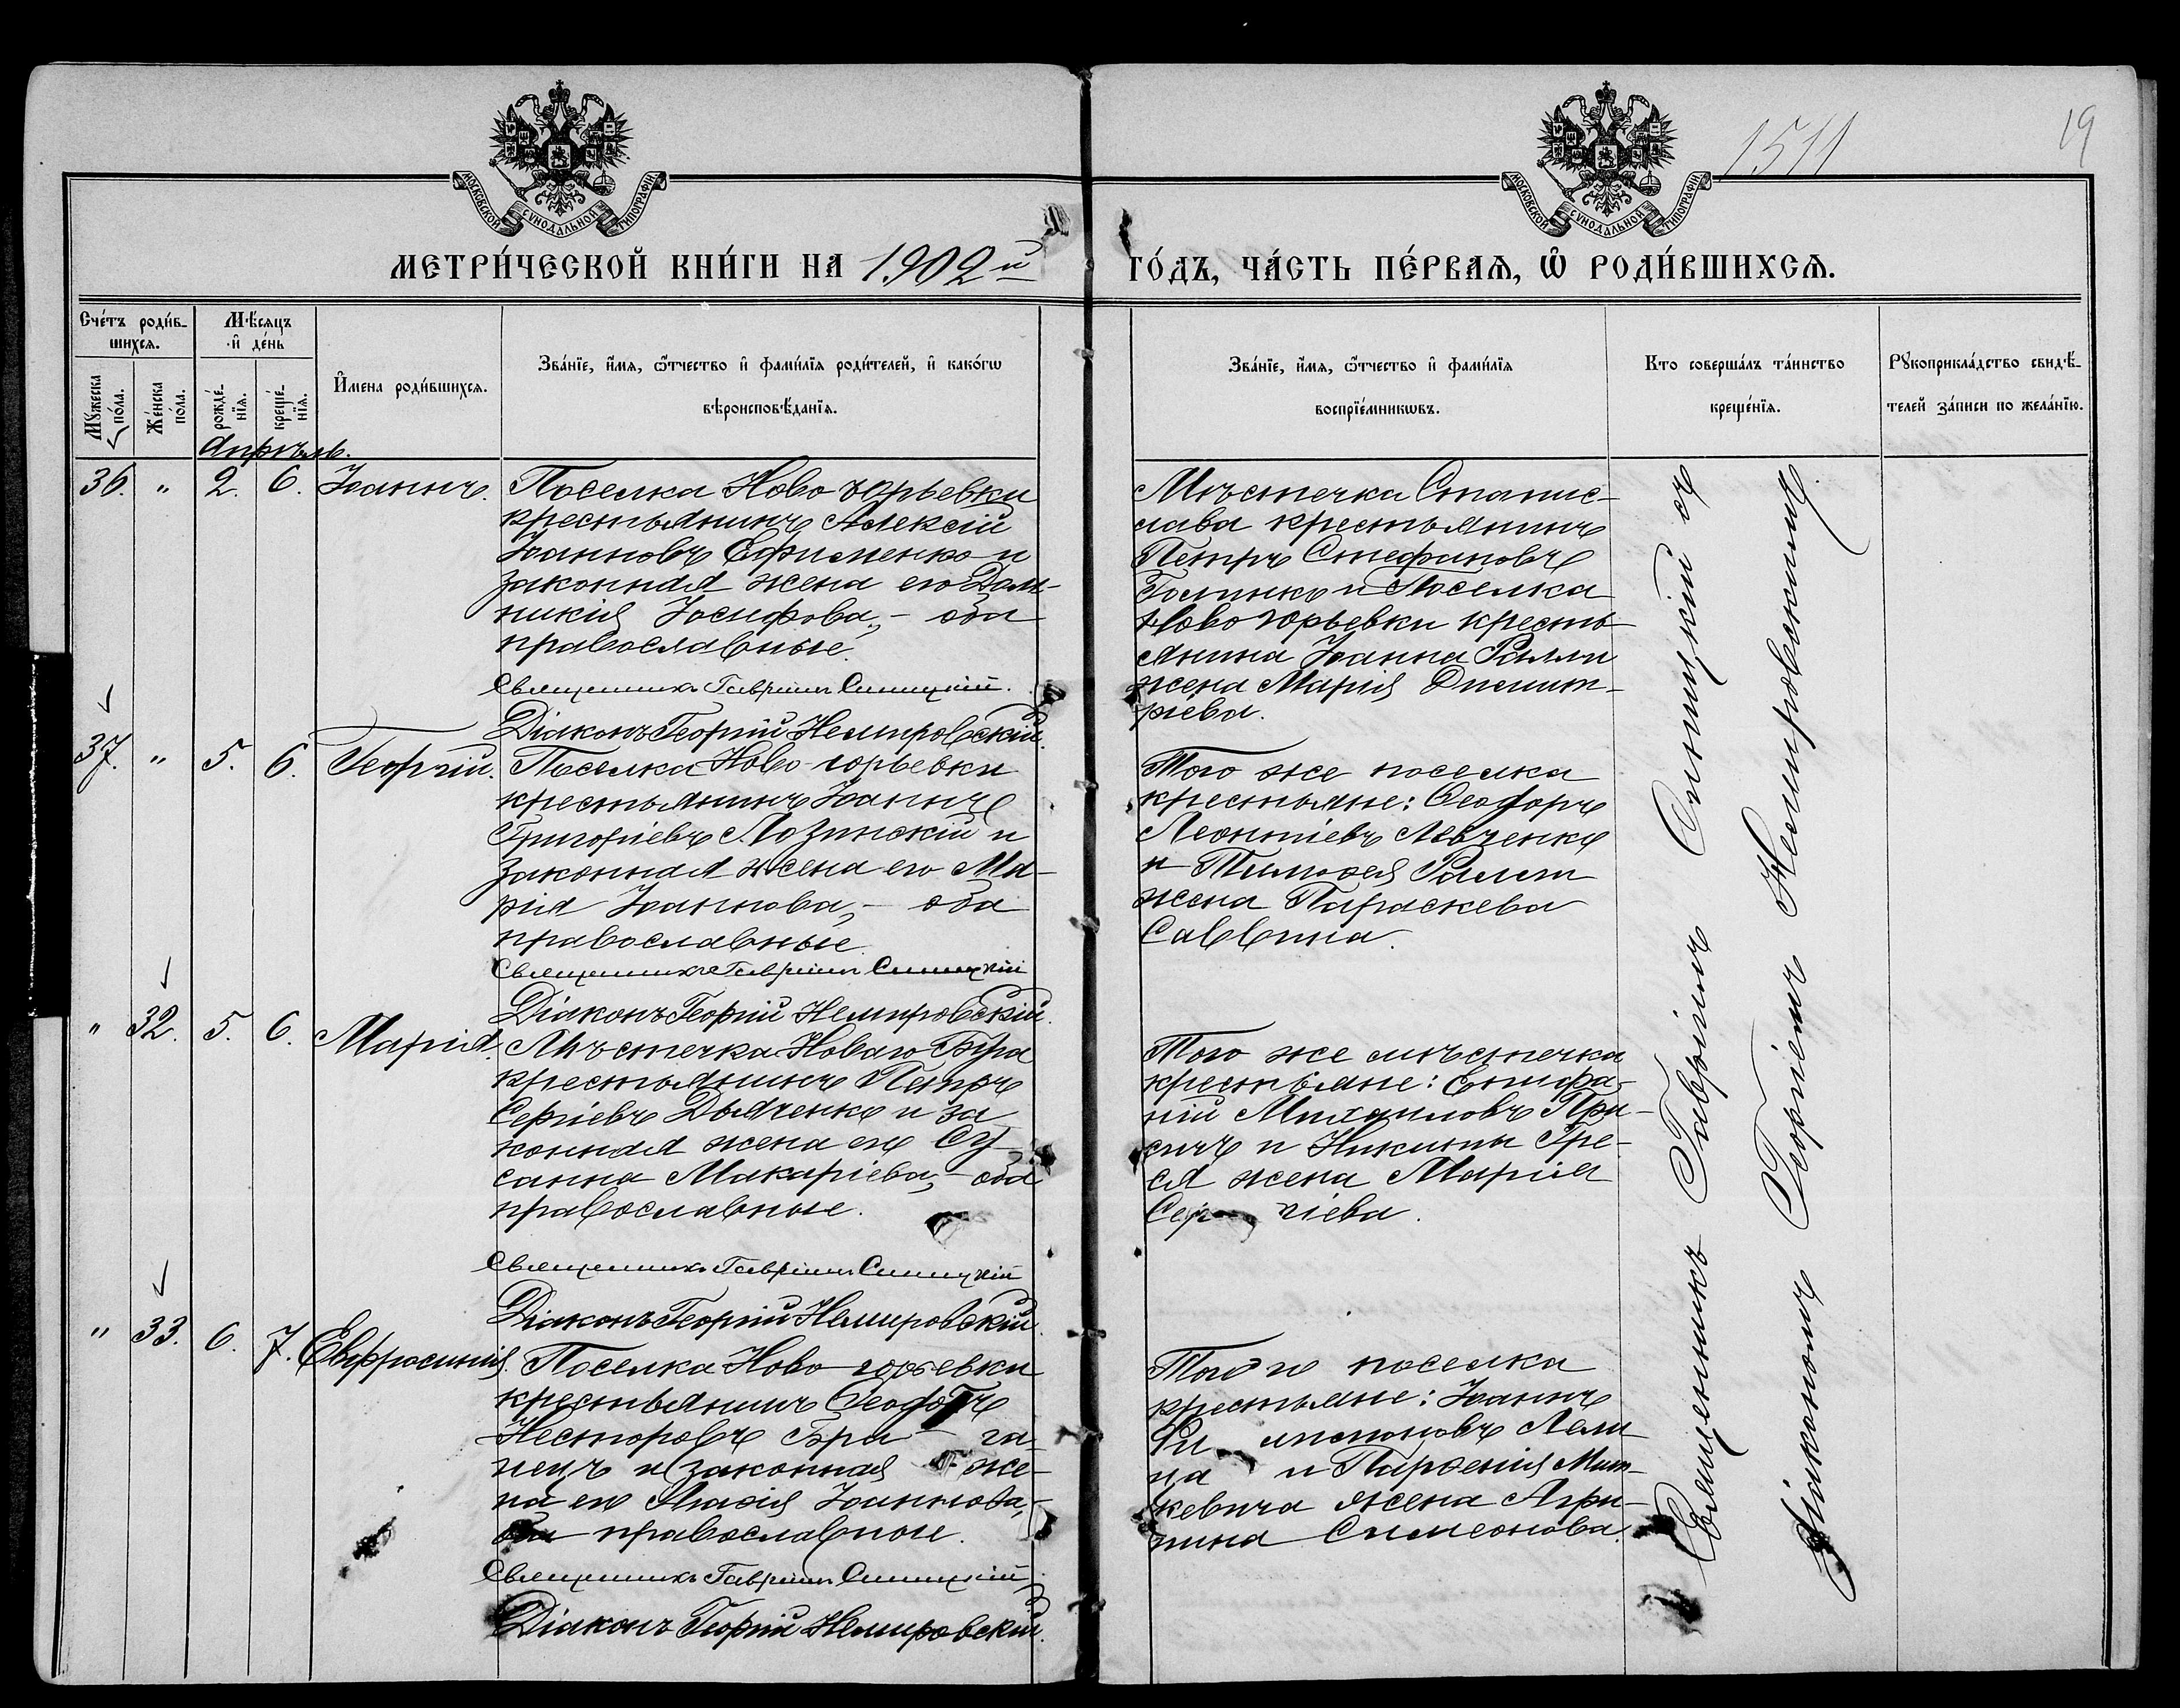 1511
19
МОСКОВСКОЙ СУНОДАЛЬНОЙ ТИПОГРАФІИ
МОСКОВСКОЙ СУНОДАЛЬНОЙ ТИПОГРАФІИ
МЕТРИ́ЧЕСКОЙ КНИ́ГИ НА 1902й ГО́ДЪ, ЧА́СТЬ ПЕ́РВАѦ, Ѡ҆ РОДИ́ВШИХСѦ.
Сче́тъ роди́в-
шихсѧ.
Мꙋ́жеска по́ла.
Же́нска по́ла.
Мѣ́сѧцъ
и҆ де́нь
рожде́-
нїѧ.
креще́-
нїѧ.
И҆мена роди́вшихсѧ.
Зва́нїе, и҆́мѧ, ѻ҆́тчество и҆ фами́лїѧ роди́телей, и҆ како́гѡ
вѣроисповѣ́данїѧ.
Зва́нїе, и҆́мѧ, ѻ҆́тчество и҆ фами́лїѧ
воспрїе́мникѡвъ.
Кто соверша́лъ та́инство
креще́нїѧ.
Рꙋкоприкла́дство свидѣ́-
телей за́писи по жела́нїю.
Апрѣль.
36. " 2. 6. Іоаннъ.
Поселка Ново Юрьевки
крестьянинъ Алексій
Іоанновъ Ефименко и
законная жена его Дом-
никія Іосифова, - оба
православные.
Священникъ Гавріилъ Синицкій.
Діаконъ Георгій Немировскій.
Мѣстечка Станис-
лава крестьянинъ
Петръ Стефановъ
и Поселка
Ново Юрьевки кресть-
янина Іоанна
жена Марія Димит-
ріева.
37. " 5. 6. Георгій.
Поселка Ново-юрьевки
крестьянинъ Іоаннъ
Григоріевъ Лозинскій и
законная жена его Ма-
рія Іоаннова, - оба
православные.
Священникъ Гавріилъ Синицкій
Діаконъ Георгій Немировскій.
Того же поселка
крестьяне: Ѳеодоръ
Леонтіевъ Левченко
и Тимоѳея
жена Параскева
Саввина.
" 32. 5. 6. Марія.
Мѣстечка Новаго Буга
крестьянинъ Петръ
Сергіевъ Дьяченко и за
конная жена его Су-
санна Макаріева, - оба
православные.
Священникъ Гавріилъ Синицкій
Діаконъ Георгій Немировскій.
Того же мѣстечка
крестьяне: Епифа-
ній Михаиловъ
и Никиты
жена Марія
Сергіева.
" 33. 6. 7. Евфросинія.
Поселка Ново-юрьевки
крестьянинъ Ѳеодоръ
Несторовъ Бра-ги-
нецъ и законная же-
на его Агаѳія Іоаннова, -
оба православные.
Священникъ Гавріилъ Синицкій.
Діаконъ Георгій Немировскій.
Того же поселка
крестьяне: Іоаннъ
и Парѳенія Миц-
кевича жена Агри-
пина Симеонова.
Священникъ Гавріилъ Синицкій съ
Діакономъ Георгіемъ Немировскимъ.